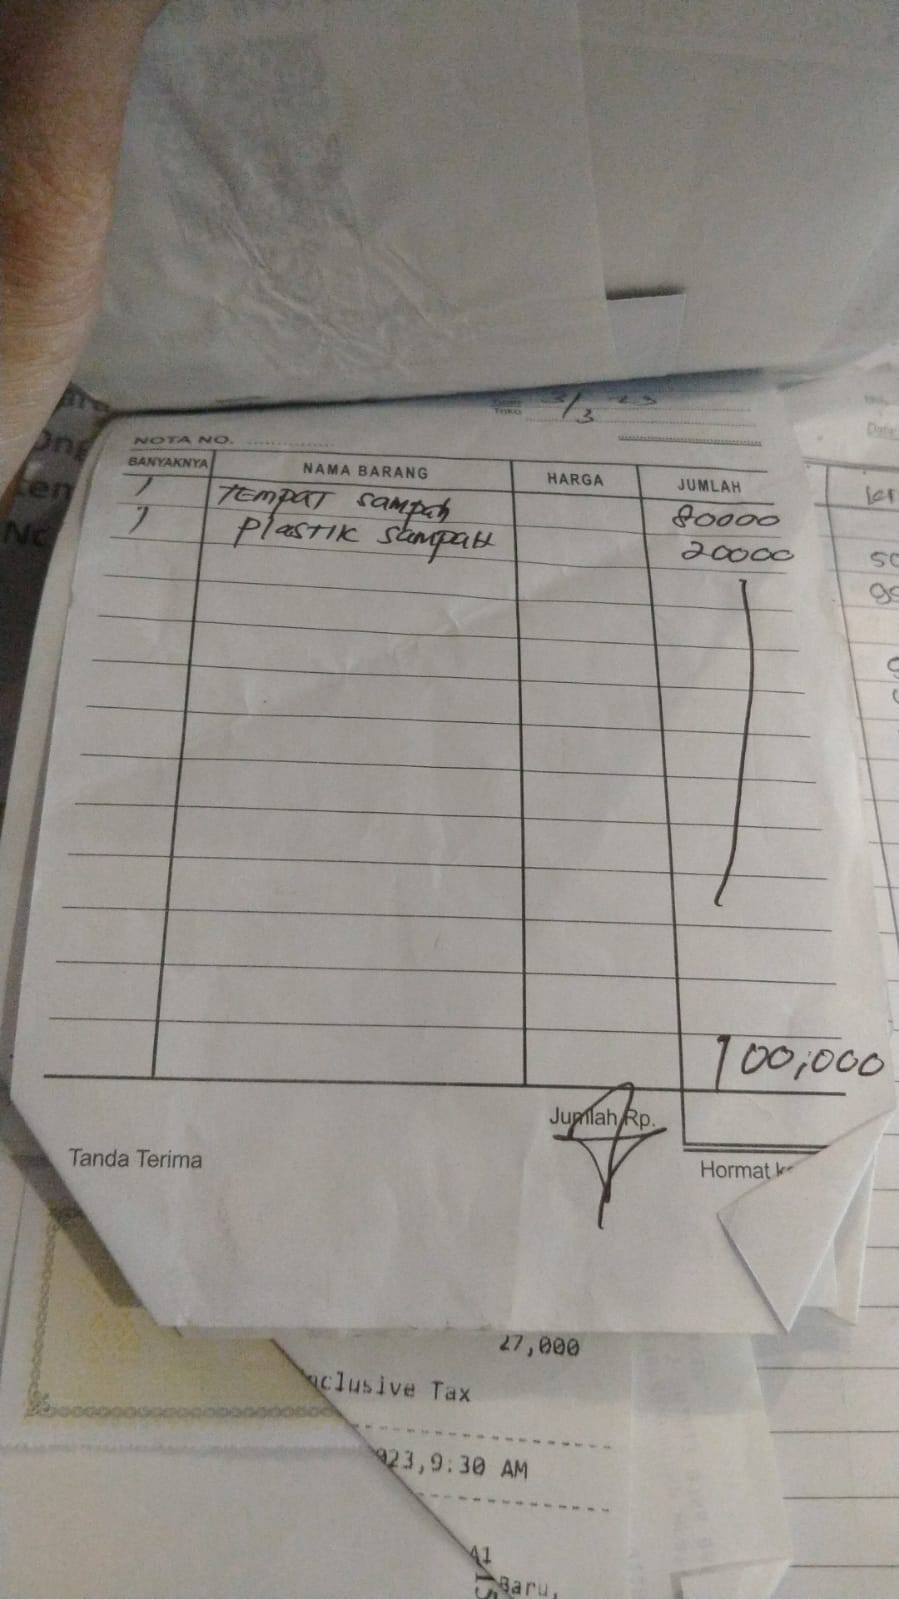 3/3 23
Toko
NOTA NO. ..............
BANYAKNYA NAMA BARANG HARGA JUMLAH
1 TEMPAT sampah 80000
1 plASTIK SampAH 20000
100,000
Jumlah Rp.
Tanda Terima
Hormat
27,000
nclusive Tax
923,9:30 AM
A1
Baru,